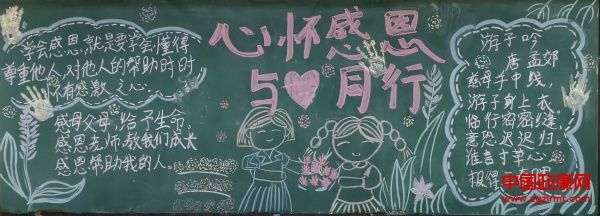 学会感恩,就是要学会懂得
尊重他人,对他人的帮助时时
怀有感激之心.
感母父母,给予生命
感恩老师教我们成长
感恩帮助我的人.
心怀感恩
与❤月行
游子吟
唐 孟郊
慈母手中线,
游子身上衣
临行密密缝
意恐迟迟归.
谁言寸草心
得